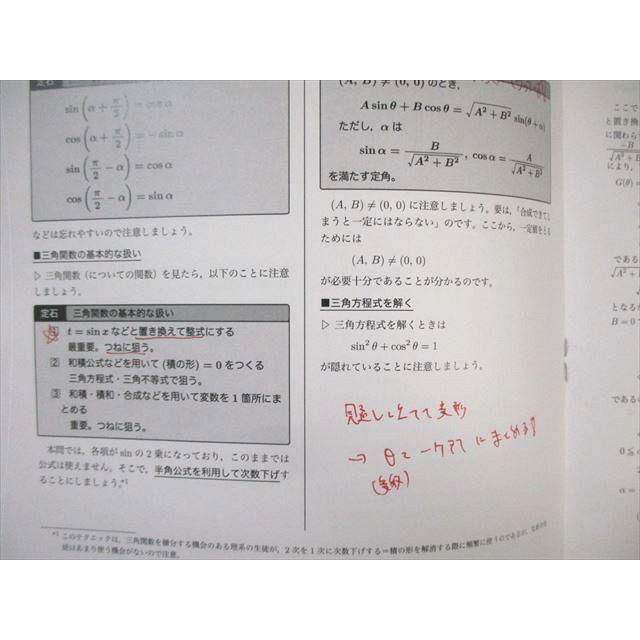 定石
sin(α + π/2) = cos α
cos(α + π/2) = − sin α
sin(π/2 − α) = cos α
cos(π/2 − α) = sin α
などは忘れやすいので注意しましょう。
■三角関数の基本的な扱い
▷ 三角関数（についての関数）を見たら，以下のことに注意
しましょう。
定石 三角関数の基本的な扱い
① t = sin x などと置き換えて整式にする
最重要。つねに狙う。
② 和積公式などを用いて (積の形) = 0 をつくる
三角方程式・三角不等式で狙う。
③ 和積・積和・合成などを用いて変数を1箇所にま
とめる
重要。つねに狙う。
本問では，各項が sin の2乗になっており，このままでは
公式は使えません。そこで，半角公式を利用して次数下げす
ることにしましょう。*1
(A, B) ≠ (0, 0) のとき，
A sin θ + B cos θ = √A² + B² sin(θ + α)
ただし，α は
sin α = B/√A² + B², cos α = A/√A² + B²
を満たす定角。
(A, B) ≠ (0, 0) に注意しましょう。要は，「合成できてし
まうと一定にはならない」のです。ここから，一定値をとる
ためには
(A, B) ≠ (0, 0)
が必要十分であることが分かるのです。
■三角方程式を解く
▷ 三角方程式を解くときは
sin² θ + cos² θ = 1
が隠れていることに注意しましょう。
見通し立てて変形
→ θを一ヶ所にまとめる
*1 このテクニックは，三角関数を積分する機会のある理系の生徒が，2次を1次に次数下げする＝積の形を解消する際に頻繁に使うのであるが，
ここで
と置き換
に関わらず
−B
√A² + B²
により，
G(θ) =
である
√A² +
となるが
B = 0
である
0 ≦
α =